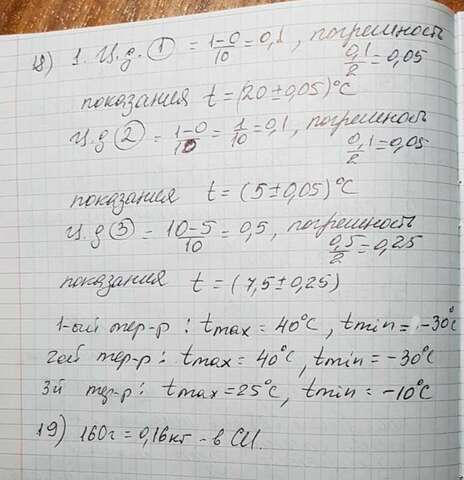 18) 1. Ц.д. ① = 1-0/10 = 0,1, погрешность 0,1/2 = 0,05
показания t = (20 ± 0,05)°C
Ц.д ② = 1-0/10 = 1/10 = 0,1, погрешность 0,1/2 = 0,05
показания t = (5 ± 0,05)°C
Ц.д ③ = 10-5/10 = 0,5, погрешность 0,5/2 = 0,25
показания t = (7,5 ± 0,25)
1-ый тер-р: tmax = 40°C, tmin = -30°C
2ой тер-р: tmax = 40°C, tmin = -30°C
3й тер-р: tmax = 25°C, tmin = -10°C
19) 160г = 0,16кг - в СИ.